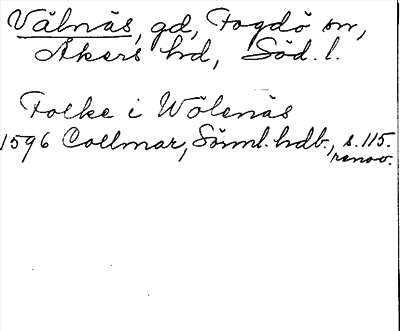 Vålnäs, gd, Fogdö sn,
Åkers hrd, Söd. l.
Folke i Wölenäs
1596 Collmar, Sörml. hdb., s. 115.
renov.